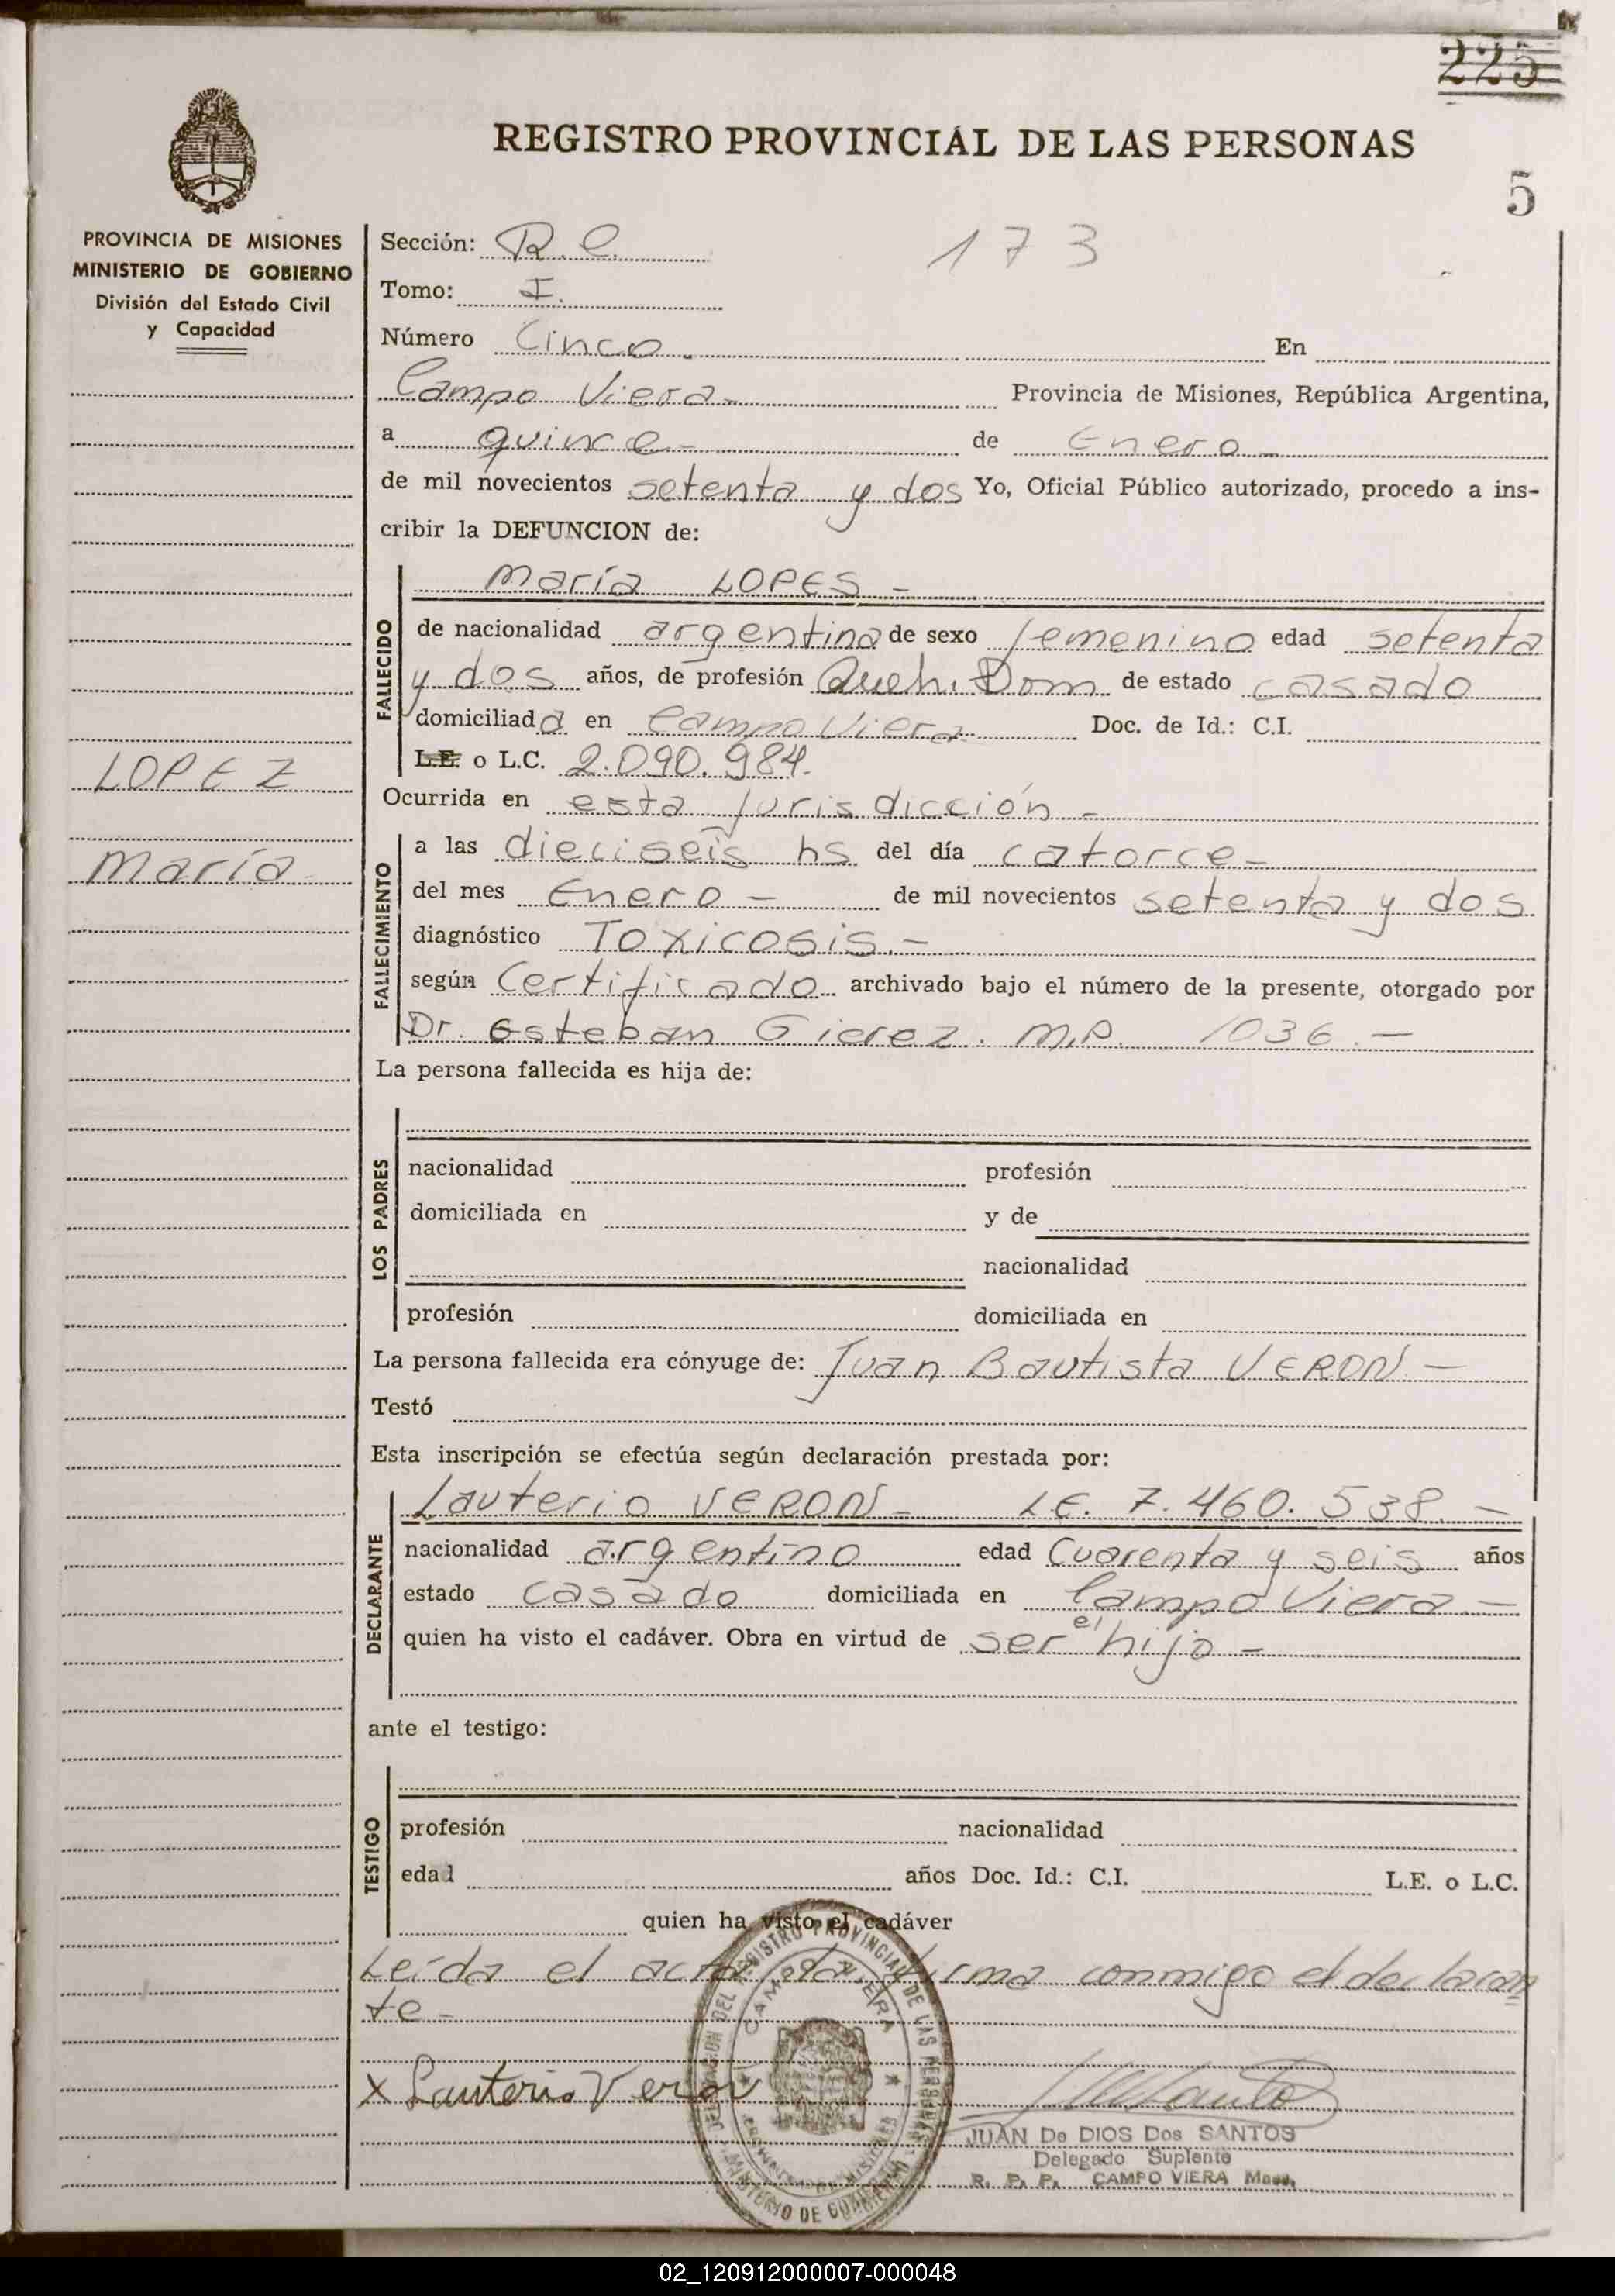 225
REGISTRO PROVINCIAL DE LAS PERSONAS
5
PROVINCIA DE MISIONES
MINISTERIO DE GOBIERNO
División del Estado Civil
y Capacidad
LOPEZ
María
Sección: R. C. 173
Tomo: I.
Número Cinco. En
Campo Viera Provincia de Misiones, República Argentina,
a quince de Enero
de mil novecientos setenta y dos Yo, Oficial Público autorizado, procedo a ins-
cribir la DEFUNCION de:
María LOPES -
FALLECIDO
de nacionalidad argentina de sexo femenino edad setenta
y dos años, de profesión Queh. Dom de estado casado
domiciliada en Campo Viera Doc. de Id.: C.I.
L.E. o L.C. 2.090.984.
Ocurrida en esta jurisdicción -
FALLECIMIENTO
a las dieciseis hs del día catorce -
del mes Enero - de mil novecientos setenta y dos
diagnóstico Toxicosis. -
según Certificado archivado bajo el número de la presente, otorgado por
Dr. Esteban Gierez. M.P. 1036. -
La persona fallecida es hija de:
LOS PADRES
nacionalidad profesión
domiciliada en y de
nacionalidad
profesión domiciliada en
La persona fallecida era cónyuge de: Juan Bautista VERON -
Testó
Esta inscripción se efectúa según declaración prestada por:
DECLARANTE
Lauterio VERON - LE. 7.460.538. -
nacionalidad argentino edad Cuarenta y seis años
estado casado domiciliada en Campo Viera -
quien ha visto el cadáver. Obra en virtud de ser el hijo -
ante el testigo:
TESTIGO
profesión nacionalidad
edad años Doc. Id.: C.I. L.E. o L.C.
quien ha visto el cadáver
Leída el acta, la firma conmigo el declaran
te -
X Lauterio Veron
JUAN De DIOS Dos SANTOS
Delegado Suplente
R. P. P. CAMPO VIERA Mnes.
DELEGACION DEL REGISTRO PROVINCIAL DE LAS PERSONAS
CAMPO VIERA
MINISTERIO DE GOBIERNO
02_120912000007-000048